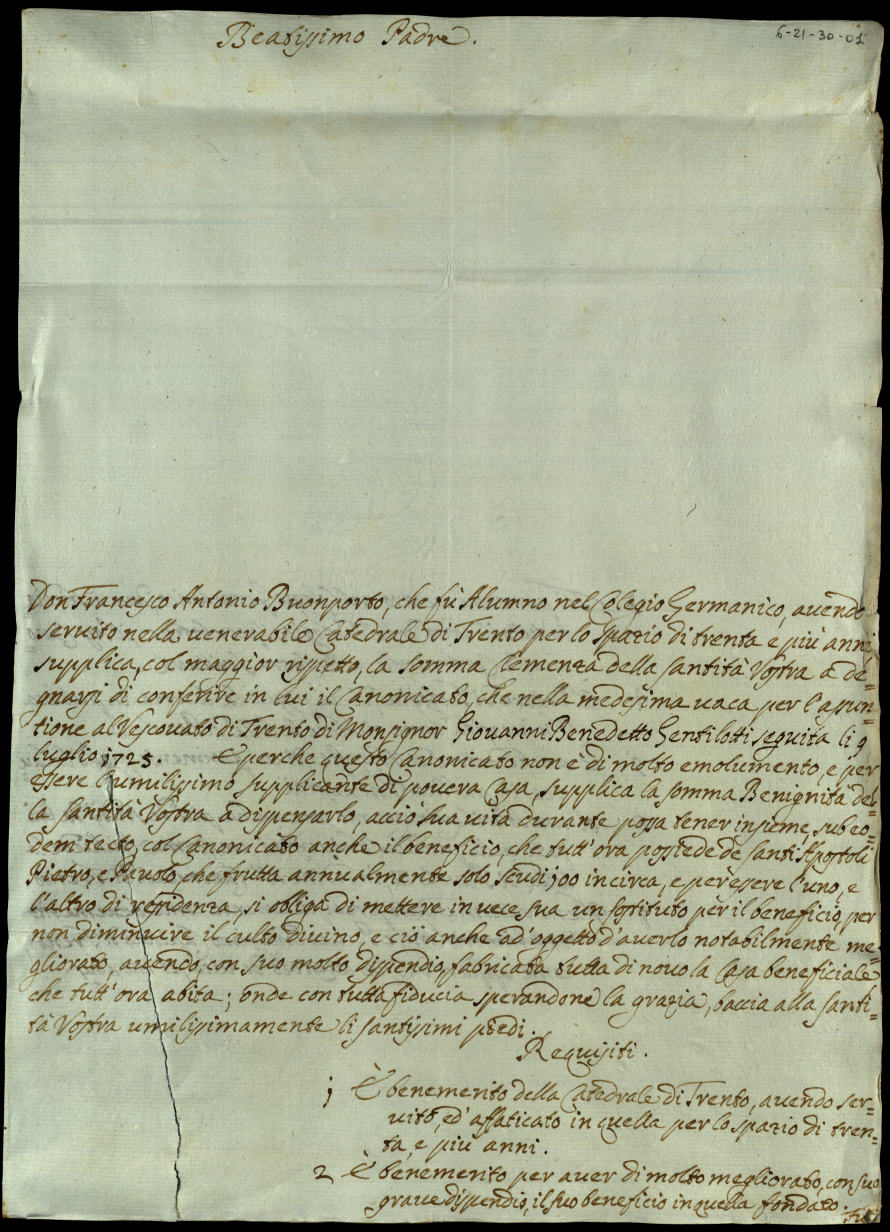 Beatissimo Padre.
6-21-30-01
Don Francesco Antonio Buonporto, che fù Alumno nel Colegio Germanico, auendo
seruito nella uenerabile Catedrale di Trento per lo spazio di trenta e più anni,
supplica, col maggior rispetto, la somma Clemenza della Santità Vostra a de=
gnarsi di conferire in lui il Canonicato, che nella medesima uaca per l'assun=
tione al Vescouato di Trento di Monsignor Giovanni Benedetto Gentilotti seguita li 9
luglio 1725. E perche questo Canonicato non è di molto emolumento, e per
essere l'umilissimo supplicante di pouera Casa, supplica la somma Benignità del=
la Santità Vostra a dispensarlo, acciò sua uita durante possa tener insieme, sub eo=
dem tecto, col Canonicato anche il beneficio, che tutt'ora possiede de Santi Apostoli
Pietro, e Pauolo, che frutta annualmente solo scudi 100 incirca, e per essere l'uno, e
l'altro di residenza, si obliga di mettere in uece sua un sostituto per il beneficio, per
non diminuire il culto diuino, e ciò anche ad'oggetto d'auerlo notabilmente me=
gliorato, auendo, con suo molto dispendio, fabricata tutta di nouo la Casa beneficiale
che tutt'ora abita; onde con tutta fiducia sperandone la grazia, baccia alla Santi=
tà Vostra umilissimamente li santissimi piedi.
Requisiti.
1 È benemerito della Catedrale di Trento, auendo ser=
uito, ed'affaticato in quella per lo spazio di tren=
ta, e più anni.
2 È benemerito per auer di molto megliorato, con suo
graue dispendio, il suo beneficio in quella fondato.